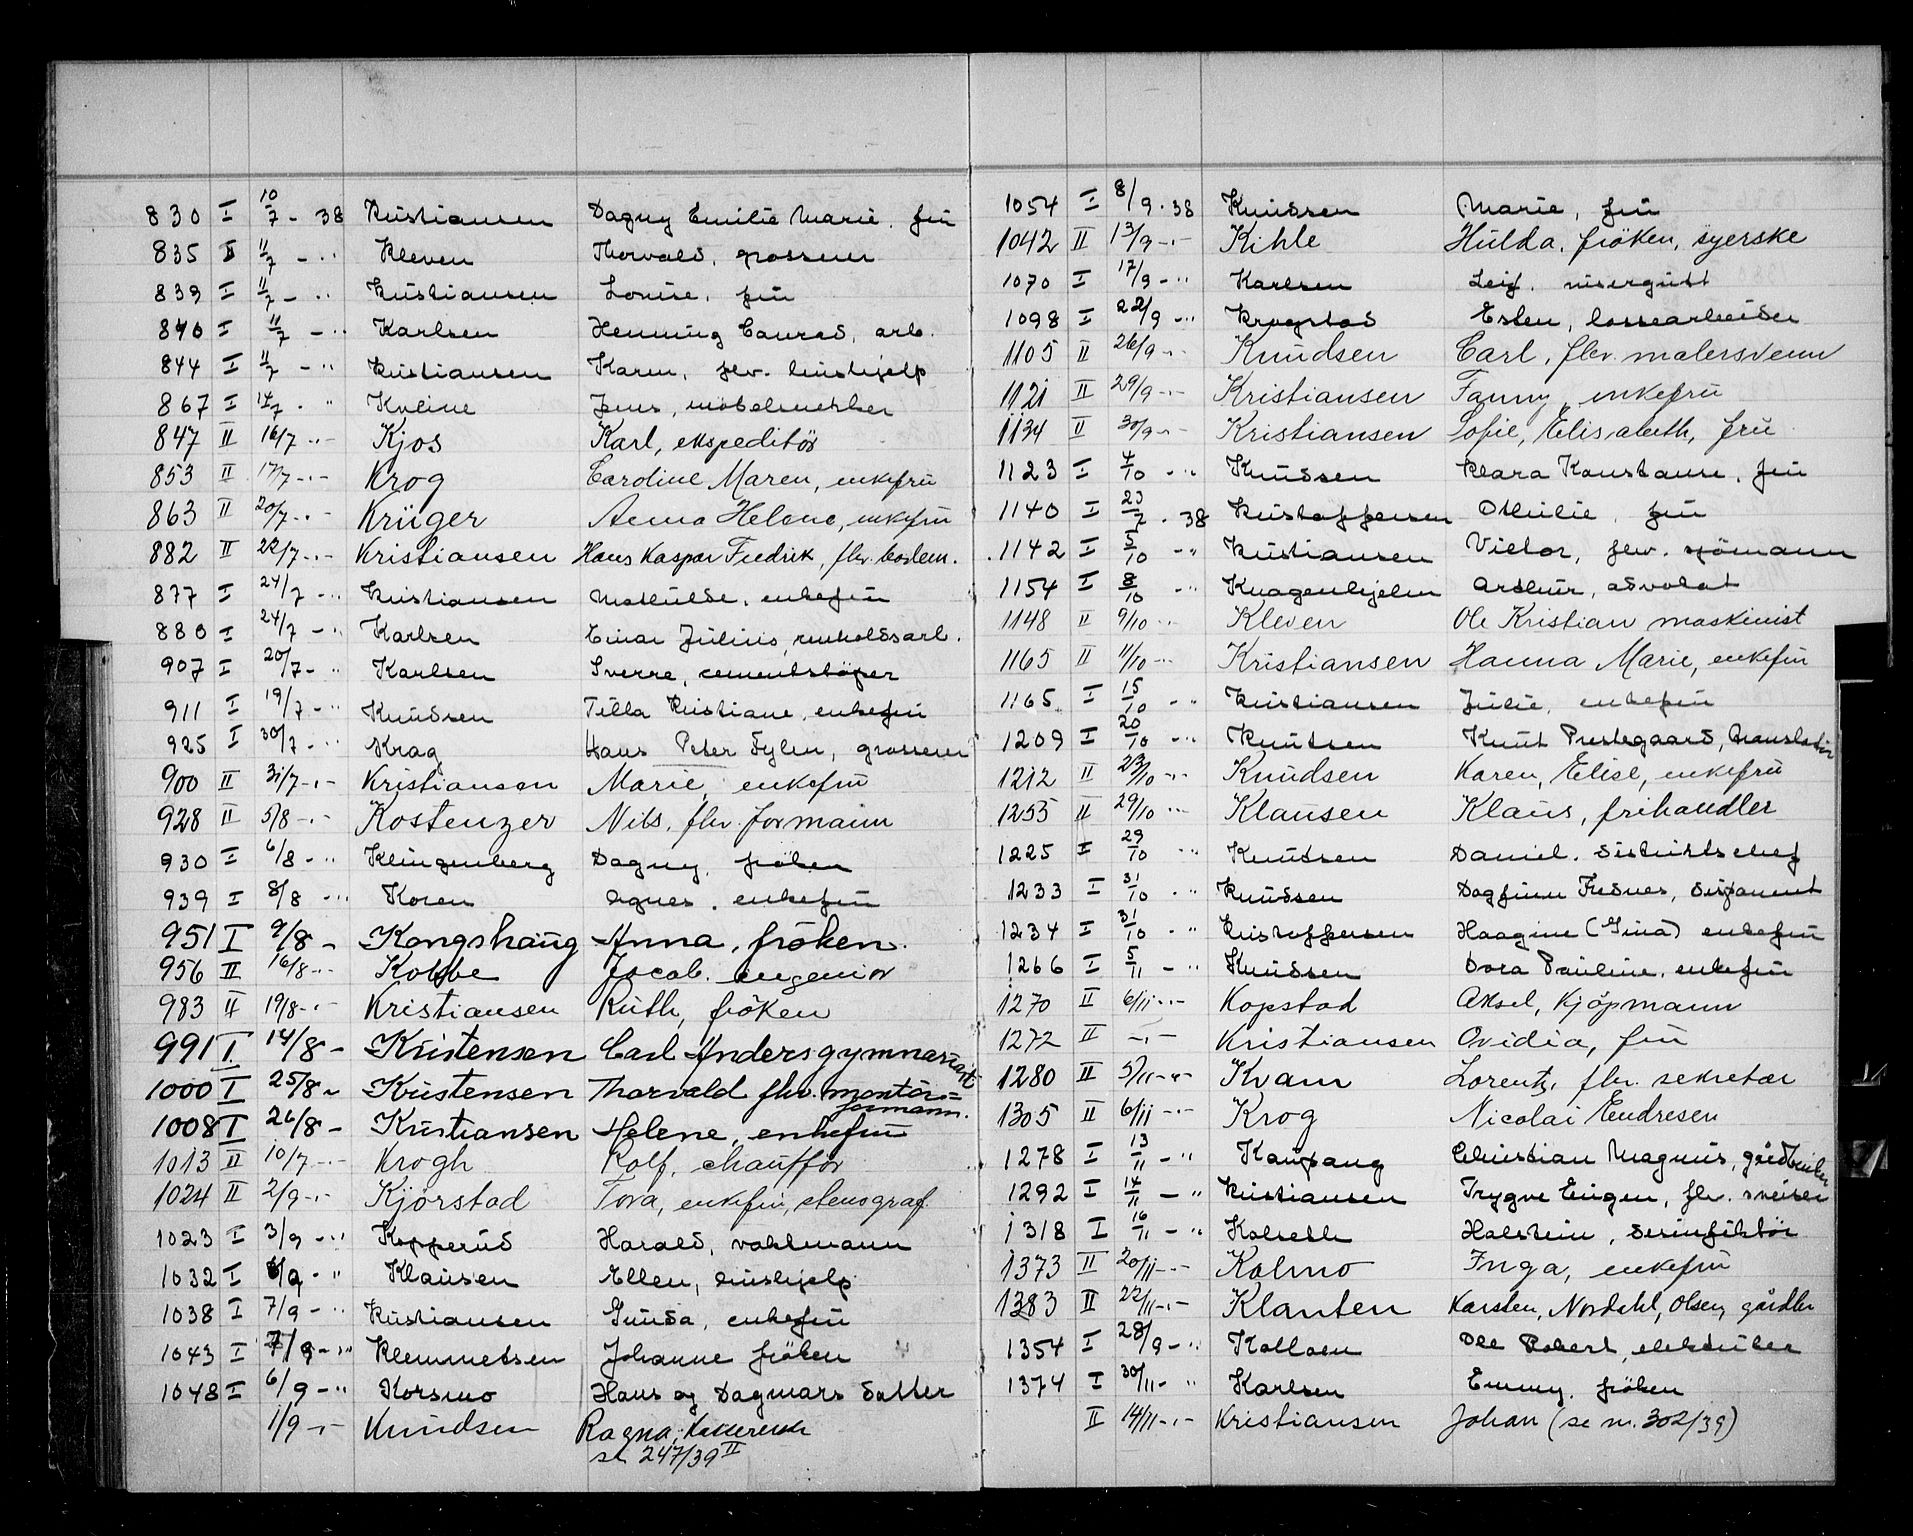 830 I 10/7 - 38 Kristiansen Dagny Emilie Marie, fru
835 II 11/7 - " Kleven Thorvald, grosserer
839 I 11/7 - " Kristiansen Louise, fru
840 I 11/7 - " Karlsen Henning Conrad, arb.
844 I 11/7 - " Kristiansen Karen, fhv. hushjelp
867 I 14/7 - " Kvline Jens, møbelsnekker
847 II 16/7 - " Kjos Karl, ekspeditör
853 II 17/7 - " Krog Caroline Maren, enkefru
863 II 20/7 - " Krüger Anna Helene, enkefru
882 II 22/7 - " Kristiansen Hans Kaspar Fredrik, fhv.
877 I 24/7 - " Kristiansen Mathilde, enkefru
880 I 24/7 - " Karlsen Einar Julius, renholdsarb.
907 I 20/7 - " Karlsen Sverre, cementstöper
911 I 19/7 - " Knudsen Tilla Kristiane, enkefru
925 I 30/7 - " Krag Hans Peter Fylen, grosserer
900 II 31/7 - " Kristiansen Marie, enkefru
928 II 5/8 - " Kostenzer Nils, fhv. formann
930 I 6/8 - " Klingenberg Dagny, fröken
939 I 8/8 - " Koren Agnes, enkefru
951 I 9/8 - Kongshaug Anna, fröken
956 II 16/8 - " Kobbe Jacob, ingeniör
983 II 19/8 - " Kristiansen Ruth, fröken
991 I 14/8 - Kristensen Carl Anders gymnasiast
1000 I 25/8 - Kristensen Thorvald fhv. montör=
formann.
1008 I 26/8 - Kristiansen Helene, enkefru
1013 II 10/7 - " Krogh Rolf, chauffør
1024 II 2/9 - " Kjörstad Tora, enkefru, stenograf.
1023 I 3/9 - " Kopperud Harald, vaktmann
1032 I 6/9 - " Klausen Ellen, hushjelp
1038 I 7/9 - " Kristiansen Gunda, enkefru
1043 I 7/9 - " Klemmetsen Johanne fröken
1048 I 6/9 - " Korsmo Hans og Dagmars datter
1/9 - " Knudsen Ragna, kassererske
se 247/39 II
1054 I 8/9 - 38 Knudsen Marie, fru
1042 II 13/9 - " Kihle Hulda, fröken, syerske
1070 I 17/9 - " Karlsen Leif, visergutt
1098 I 22/9 - " Krogstad Esten, lossearbeider
1105 II 26/9 - " Knudsen Carl, fhv. malersvenn
1121 II 29/9 - " Kristiansen Fanny, enkefru
1134 II 30/9 - " Kristiansen Sofie, Elisabeth, fru
1123 I 4/10 - " Knudsen Klara Konstanse, fru
1140 I 23/7 - 38 Kristoffersen Othilie, fru
1142 I 5/10 - " Kristiansen Victor, fhv. sjömann
1154 I 8/10 - " Knagenhjelm Arthur, advokat
1148 II 9/10 - " Kleven Ole Kristian maskinist
1165 II 11/10 - " Kristiansen Hanna Marie, enkefru
1165 I 15/10 - " Kristiansen Julie, enkefru
1209 I 20/10 - " Knutsen Knut Prestegaard, translatör
1212 II 23/10 - " Knudsen Karen, Elise, enkefru
1255 II 29/10 - " Klausen Klaus, frihandler
1225 I 29/10 - " Knutsen Daniel, distriktschef
1233 I 31/10 - " Knudsen Dagfinn Frednes, disponent
1234 I 31/10 - " Kristoffersen Haagine (Gina) enkefru
1266 I 5/11 - " Knudsen Dora Pauline, enkefru
1270 II 6/11 - " Kopstad Aksel, kjöpmann
1272 II - " - Kristiansen Ovidia, fru
1280 II 5/11 - " Kvam Lorentz, fhv. sekretær
1305 II 6/11 - " Krog Nicolai Endresen
1278 I 13/11 - " Kaupang Christian Magnus, gårdbruker
1292 I 14/11 - " Kristiansen Trygve Eugen, fhv. sveiser
1318 I 16/11 - " Kolseth Halstein, desinfektör
1373 II 20/11 - " Kolmo Inga, enkefru
1383 II 22/11 - " Klanten Karsten, Nordahl, Olsen, gårdbr
1354 I 28/9 - " Kolloen Ole Robert, elektriker
1374 I 30/11 - " Karlsen Emmy, fröken
II 14/11 - " Kristiansen Johan (se nr. 302/39)